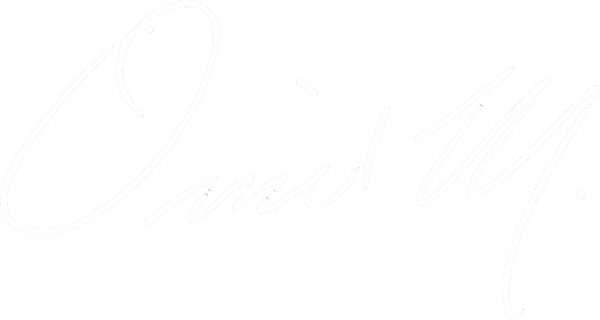 Omid M.